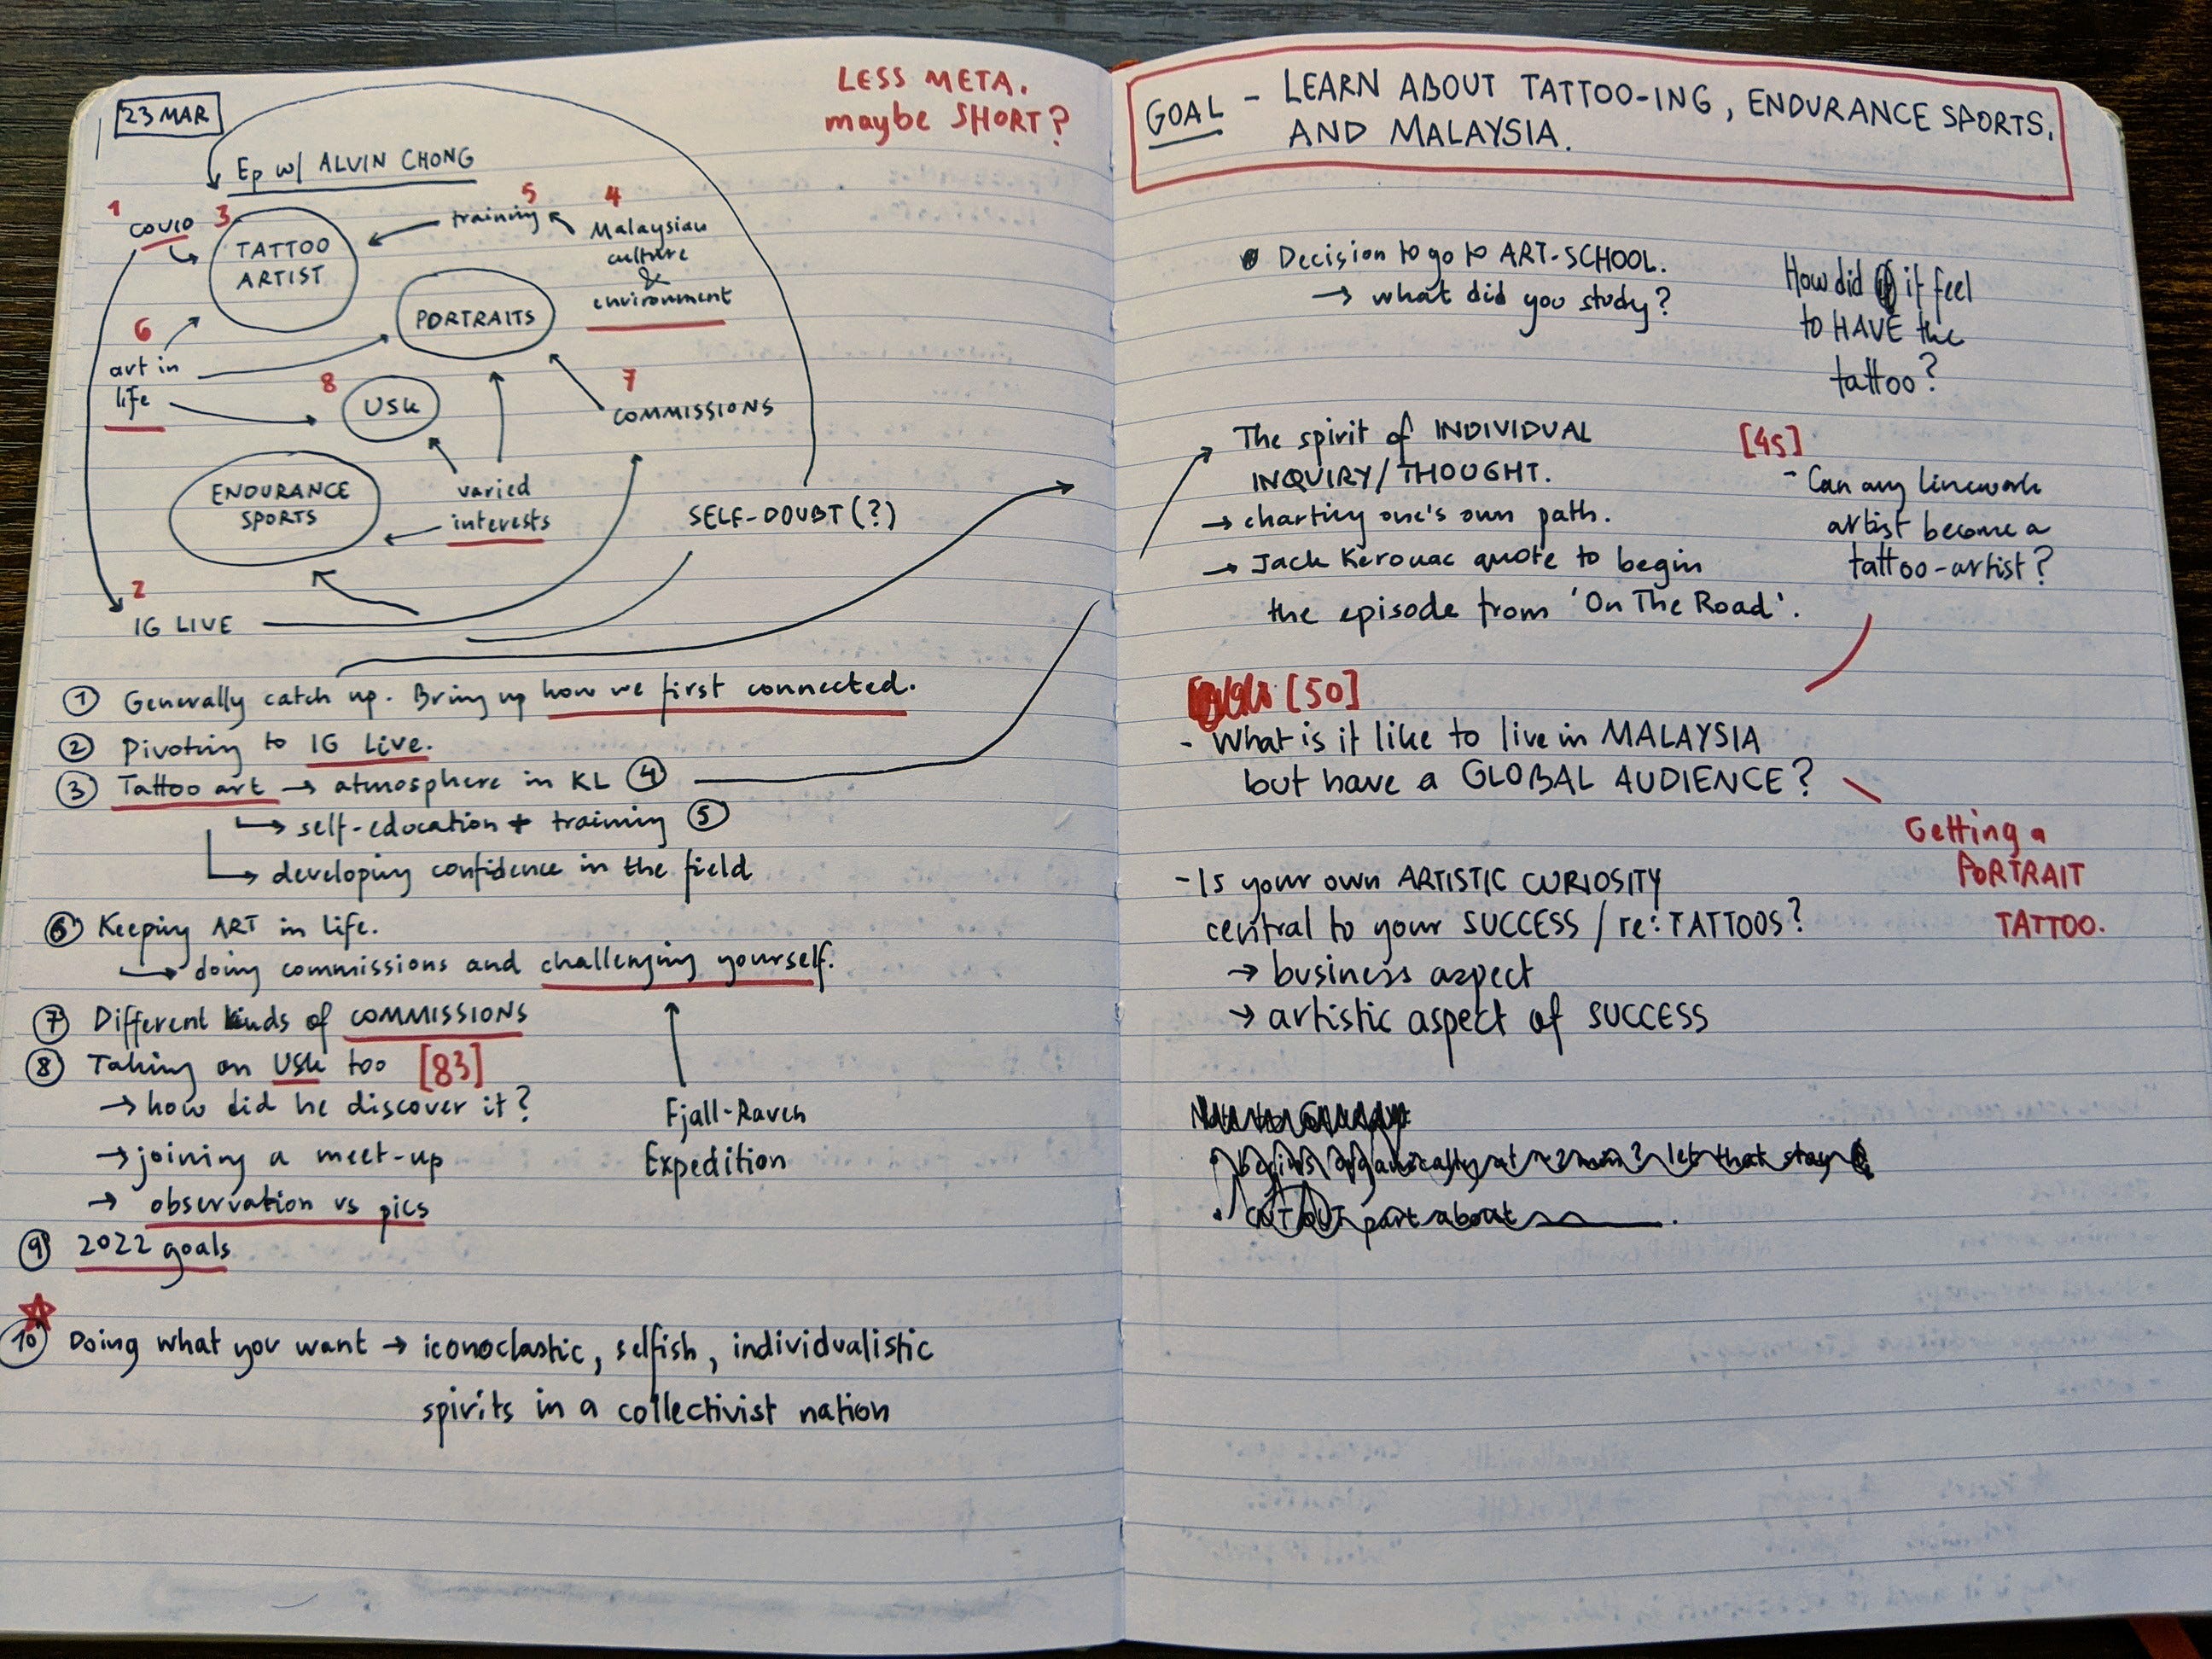 23 MAR
LESS META.
maybe SHORT?
Ep w/ ALVIN CHONG
1
COVID
3
TATTOO
ARTIST
training
5
4
Malaysian
culture
&
environment
PORTRAITS
6
art in
life
8
USk
7
COMMISSIONS
ENDURANCE
SPORTS
varied
interests
SELF-DOUBT (?)
2
IG LIVE
① Generally catch up. Bring up how we first connected.
② Pivoting to IG Live.
③ Tattoo art → atmosphere in KL ④
↳ self-education + training ⑤
↳ developing confidence in the field
⑥ Keeping ART in life.
↳ doing commissions and challenging yourself.
⑦ Different kinds of COMMISSIONS
⑧ Taking on USk too [83]
→ how did he discover it?
→ joining a meet-up
→ observation vs pics
Fjall-Raven
Expedition
⑨ 2022 goals
⑩ Doing what you want → iconoclastic, selfish, individualistic
spirits in a collectivist nation
GOAL - LEARN ABOUT TATTOO-ING, ENDURANCE SPORTS,
AND MALAYSIA.
• Decision to go to ART-SCHOOL.
→ what did you study?
How did it feel
to HAVE the
tattoo?
The spirit of INDIVIDUAL
INQUIRY/THOUGHT.
→ charting one's own path.
→ Jack Kerouac quote to begin
the episode from 'On The Road'.
[45]
- Can any linework
artist become a
tattoo-artist?
[50]
- What is it like to live in MALAYSIA
but have a GLOBAL AUDIENCE?
Getting a
PORTRAIT
TATTOO.
- Is your own ARTISTIC CURIOSITY
central to your SUCCESS / re: TATTOOS?
→ business aspect
→ artistic aspect of SUCCESS
let that stay
CUT OUT part about